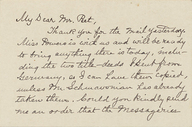 My Dear Mr. Pet,
Thank you for the mail yesterday.
Miss Pounds is with us and will be ready
to bring anything else in today, inclu-
ding the two title-deeds I sent from
, as I can have them copied,
unless Mr. Schmavonian has already
taken them. Could you kindly send
me an order that the Messageries